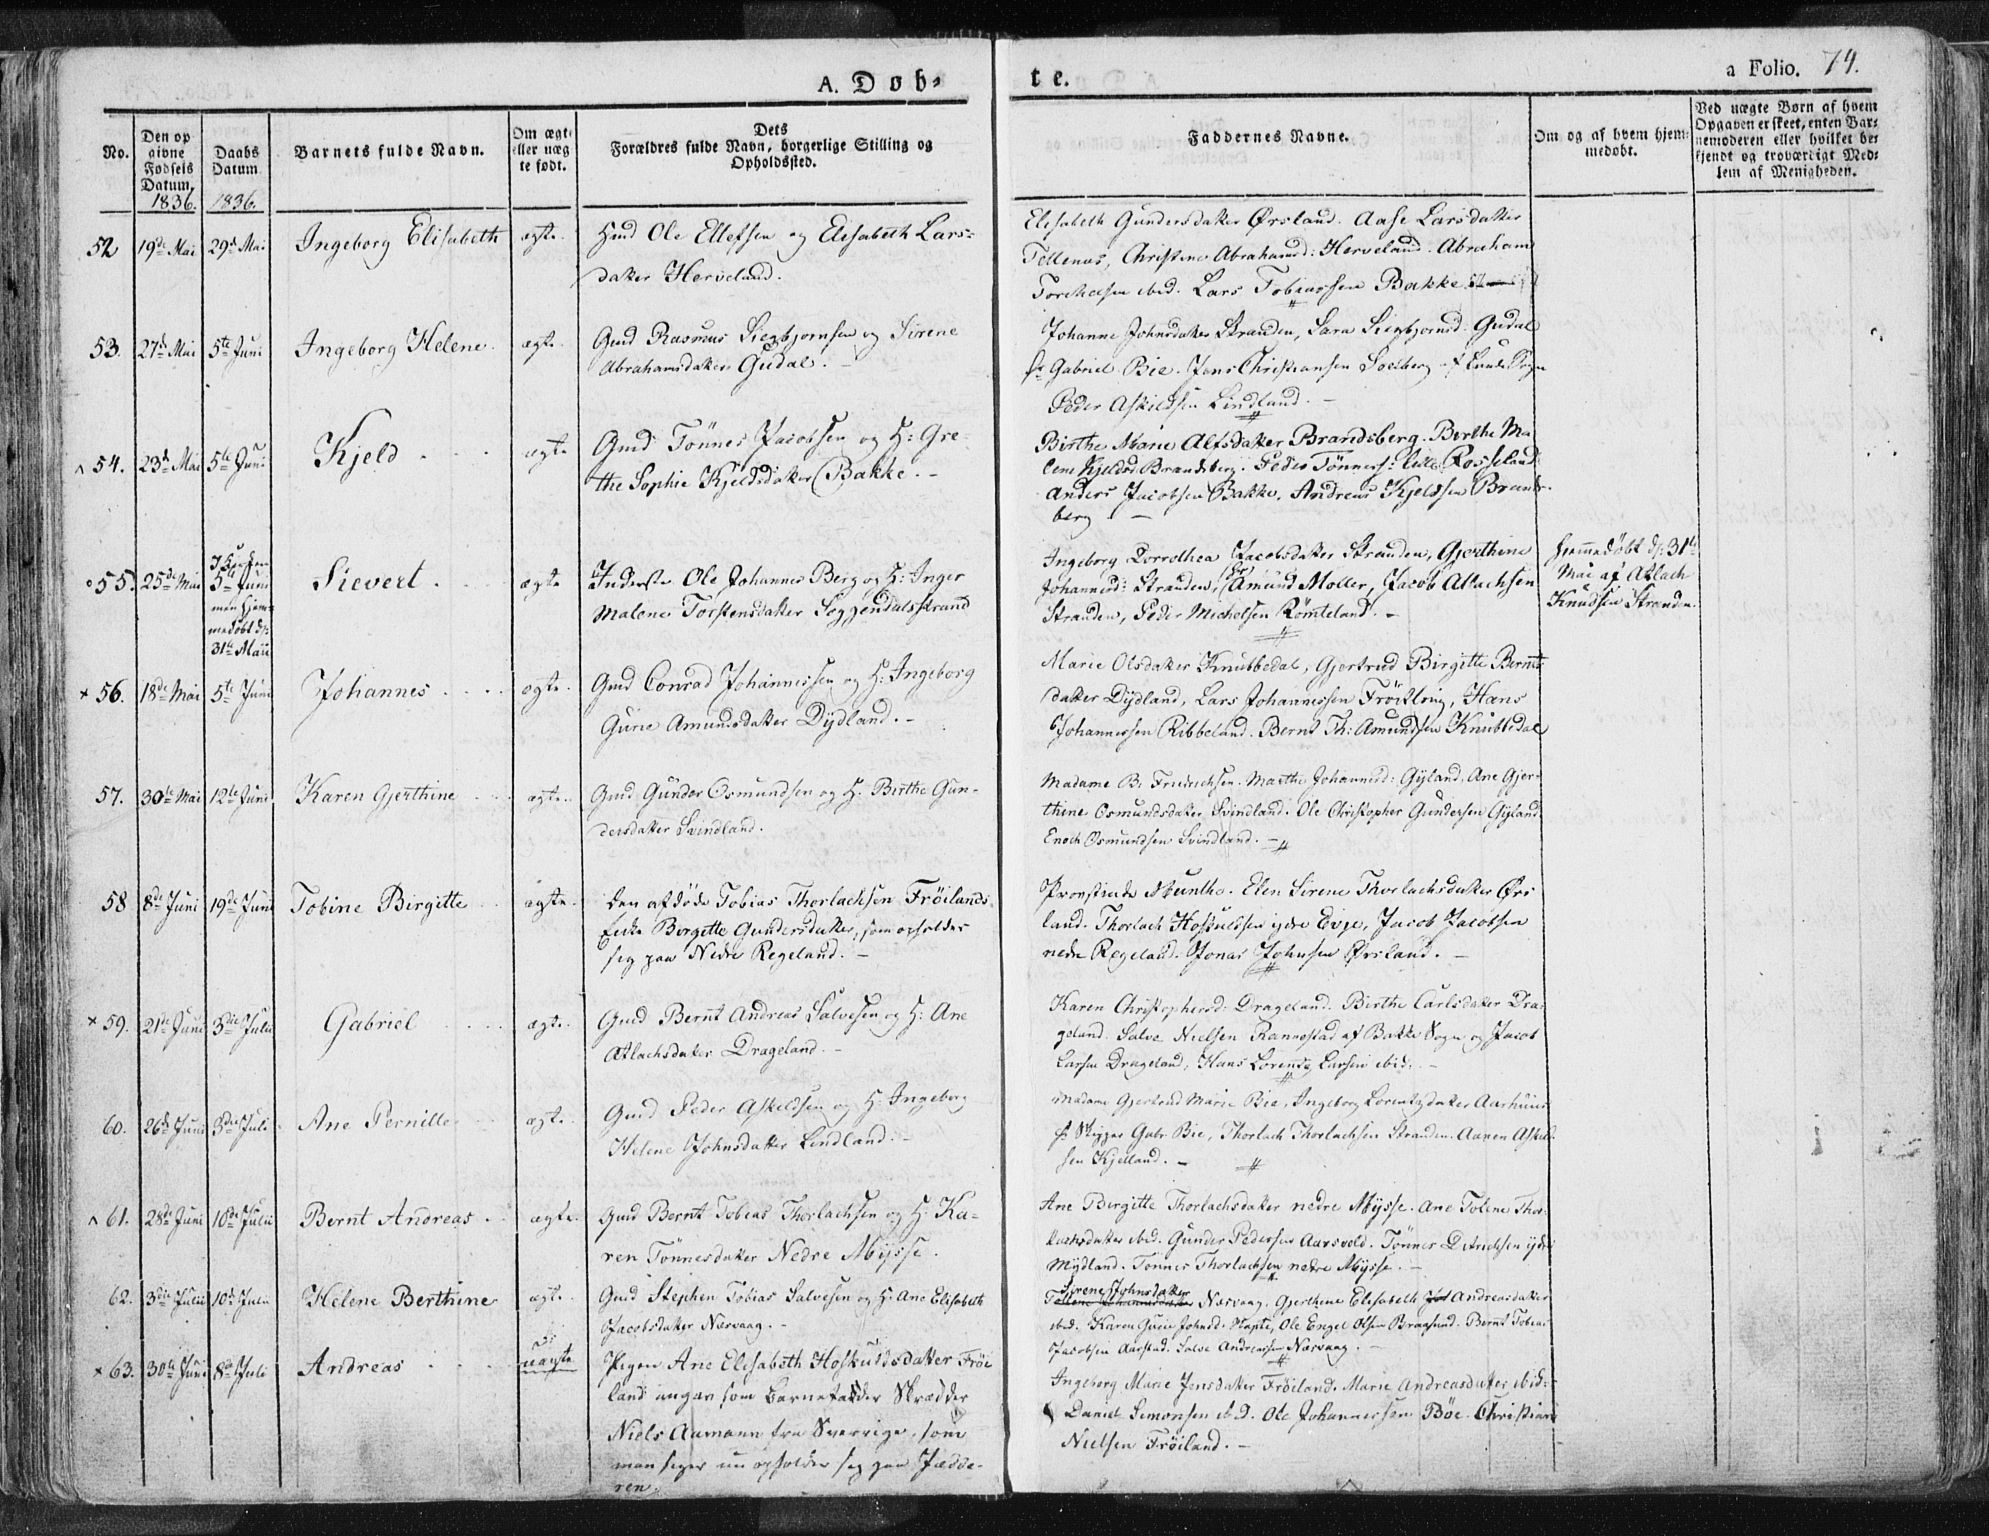 A. Døb-
te.
a Folio. 74.
No.
Den op
givne
Fødsels
Datum.
1836.
Daabs
Datum
1836.
Barnets fulde Navn.
Om ægte
eller uæg
te født.
Dets
Forældres fulde Navn, borgerlige Stilling og
Opholdssted.
Faddernes Navne.
Om og af hvem hjem-
medøbt.
Ved uægte Børn af hvem
Opgaven er skeet, enten Bar-
nemoderen eller hvilket be-
kjendt og troværdigt Med-
lem af Menigheden.
52 19de Mai 29de Mai Ingeborg Elisabeth ægte.
Gmd Ole Ellefsen og Elisabeth Lars-
datter Herveland.
Elisabeth Gundersdatter Ørsland. Aase Larsdatter
Tellenes, Christine Abrahamsd: Herveland. Abraham
ibid. Lars Tobiassen Bakke
53. 27de Mai 5te Juni Ingeborg Helene. ægte.
Gmd Rasmus Siegbjørnsen og Sirene
Abrahamsdatter Gudal.
Johanne Johnsdatter Stranden, Sara Siegbjørnsd: Gudal
Gabriel Bie. Jens Christiansen Soelberg af Lunde Sogn
Peder Askildsen Lindland.
54. 23de Mai 5te Juni Kjeld ægte
Gmd Tönnes Jacobsen og H: Gre-
the Sophie Kjeldsdatter Bakke.
Birthe Marie Alfsdatter Brandsberg. Berthe Ma
lene Kjeldsd. Brandsberg. Peder Tönness: Lille Rosseland
Anders Jacobsen Bakke, Andreas Kjeldsen Brands-
berg
55. 25de Mai
5te Juni
men hjem-
medøbt d:
31te Maii
Sievert ægte
Inderste Ole Johannes Berg og H: Inger
Malene Torstensdatter Soggendalsstrand
Ingeborg Dorrothea Jacobsdatter Stranden, Gjerthine
Johannesd: Stranden, Amund Moller, Jacob Atlachsen
Stranden, Peder Michelsen Römteland.
Hjemmedøbt d: 31te
Mai af Atlach
Knudsen Stranden.
56. 18de Mai 5te Juni Johannes ægte.
Gmd Conrad Johannessen og H: Ingeborg
Gurie Amundsdatter Dydland.
Marie Olsdatter Knubbedal, Gjertrud Birgitte Bernts
datter Dydland, Lars Johannessen Fröitlog, Hans
Johannessen Ribbeland. Bernt Th: Amundsen Knubbedal
57. 30te Mai 12te Juni Karen Gjerthine ægte.
Gmd Gunder Osmundsen og H. Birthe Gun-
dersdatter Svindland.
Madame B: Friedrichsen. Marthe Johannesd: Gyland. Ane Gjer-
thine Osmundsdatter Svindland. Ole Christopher Gundersen Gyland.
Enoch Osmundsen Svindland.
58 8de Juni 19de Juni Tobine Birgitte ægte.
Den afdöde Tobias Thorlachsen Fröilands
Enke Birgitte Gundersdatter, som opholder
sig paa Nedre Regeland.
Provstinde Munthe. Elen Sirene Thorlachsdatter Ørs
land. Thorlach Hoskuldsen ydre Evje, Jacob Jacobsen
nedre Regeland. Jonas Johnsen Ørsland.
59. 21de Juni 3die Julii Gabriel ægte.
Gmd Bernt Andreas Salvesen og H: Ane
Atlachsdatter Drageland.
Karen Christophersd: Drageland. Birthe Carlsdatter Dra-
geland. Salve Nielsen Rannestad af Bakke Sogn og Jacob
Larsen Drageland, Hans Lorentz Larsen ibid:
60. 26de Juni 3die Juli Ane Pernille ægte.
Gmd Peder Askeldsen og H. Ingeborg
Helene Johnsdatter Lindland.
Madame Gjertrud Marie Bie, Ingeborg Lorentzdatter Aarhuus
Skipper Gabr Bie, Thorlach Thorlachsen Stranden. Aanen Askeld-
sen Kjelland.
61. 28de Juni 10de Julii Bernt Andreas ægte.
Gmd Bernt Tobias Thorlachsen og H. Ka-
ren Tönnesdatter Nedre Mysse.
Ane Birgitte Thorlachsdatter nedre Mysse. Ane Tolene Thor-
lachsdatter ibid. Gunder Pedersen Aarsvold. Tönnes Ditrichsen ydre
Mydland. Tönnes Thorlachsen nedre Mysse.
62. 3die Julii 10de Julii Helene Berthine ægte.
Gmd Stephen Tobias Salvesen og H. Ane Elisabeth
Jacobsdatter Næsvaag.
Sirene Johnsdatter
Næsvaag. Gjerthine Elisabeth Andreasdatter
ibid. Karen Gurie Johnsd. Stapte, Ole Engel Olsen Bragsund. Bernt Tobias
Jacobsen Aarstad. Salve Andreassen Næsvaag.
63. 30te Juni 8de Juli Andreas uægte
Pigen Ane Elisabeth Hoskuldsdatter Fröi
land angav som Barnefader Skrædder
Niels Aamann fra Sverrige, som
man siger nu opholder sig paa Jædde-
ren.
Ingeborg Marie Jensdatter Fröiland. Marie Andreasdatter ibid:
Daniel Simonsen ibid. Ole Johannessen Böe. Christian
Nielsen Fröiland.